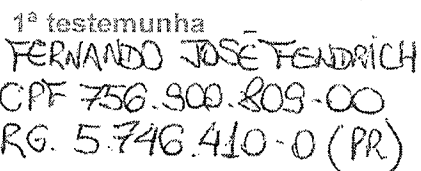 1ª testemunha
FERNANDO JOSÉ FENDRICH
CPF 756.900.809-00
RG. 5.746.410-0 (PR)